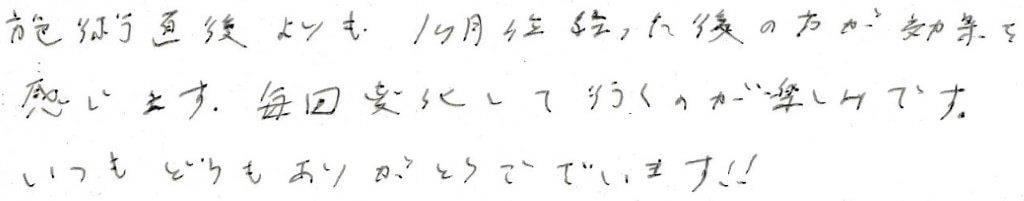 施術直後よりも、1ヶ月位経った後の方が効果を
感じます。毎回変化して行くのが楽しみです。
いつもどうもありがとうございます!!